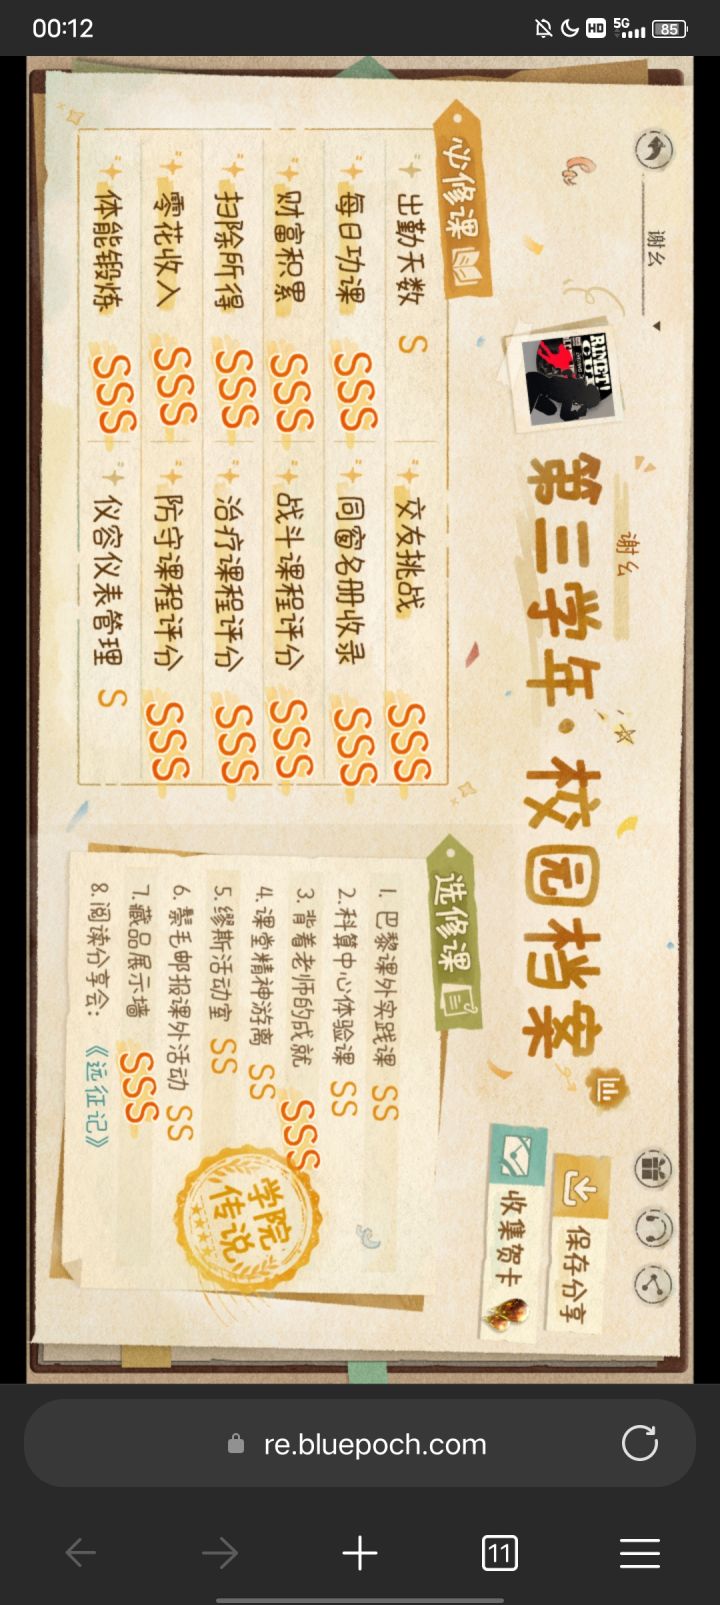 00:12
HD
5G
85
谢幺
谢幺
第三学年·校园档案
保存分享
收集贺卡
必修课
出勤天数 S
交友挑战 SSS
每日功课 SSS
同窗名册收录 SSS
财富积累 SSS
战斗课程评分 SSS
扫除所得 SSS
治疗课程评分 SSS
零花收入 SSS
防守课程评分 SSS
体能锻炼 SSS
仪容仪表管理 S
选修课
1. 巴黎课外实践课 SS
2. 科算中心体验课 SS
3. 背着老师的成就 SSS
4. 课堂精神游离 SS
5. 缪斯活动室 SS
6. 鬃毛邮报课外活动 SS
7. 藏品展示墙 SSS
8. 阅读分享会：《远征记》
学院
传说
re.bluepoch.com
11